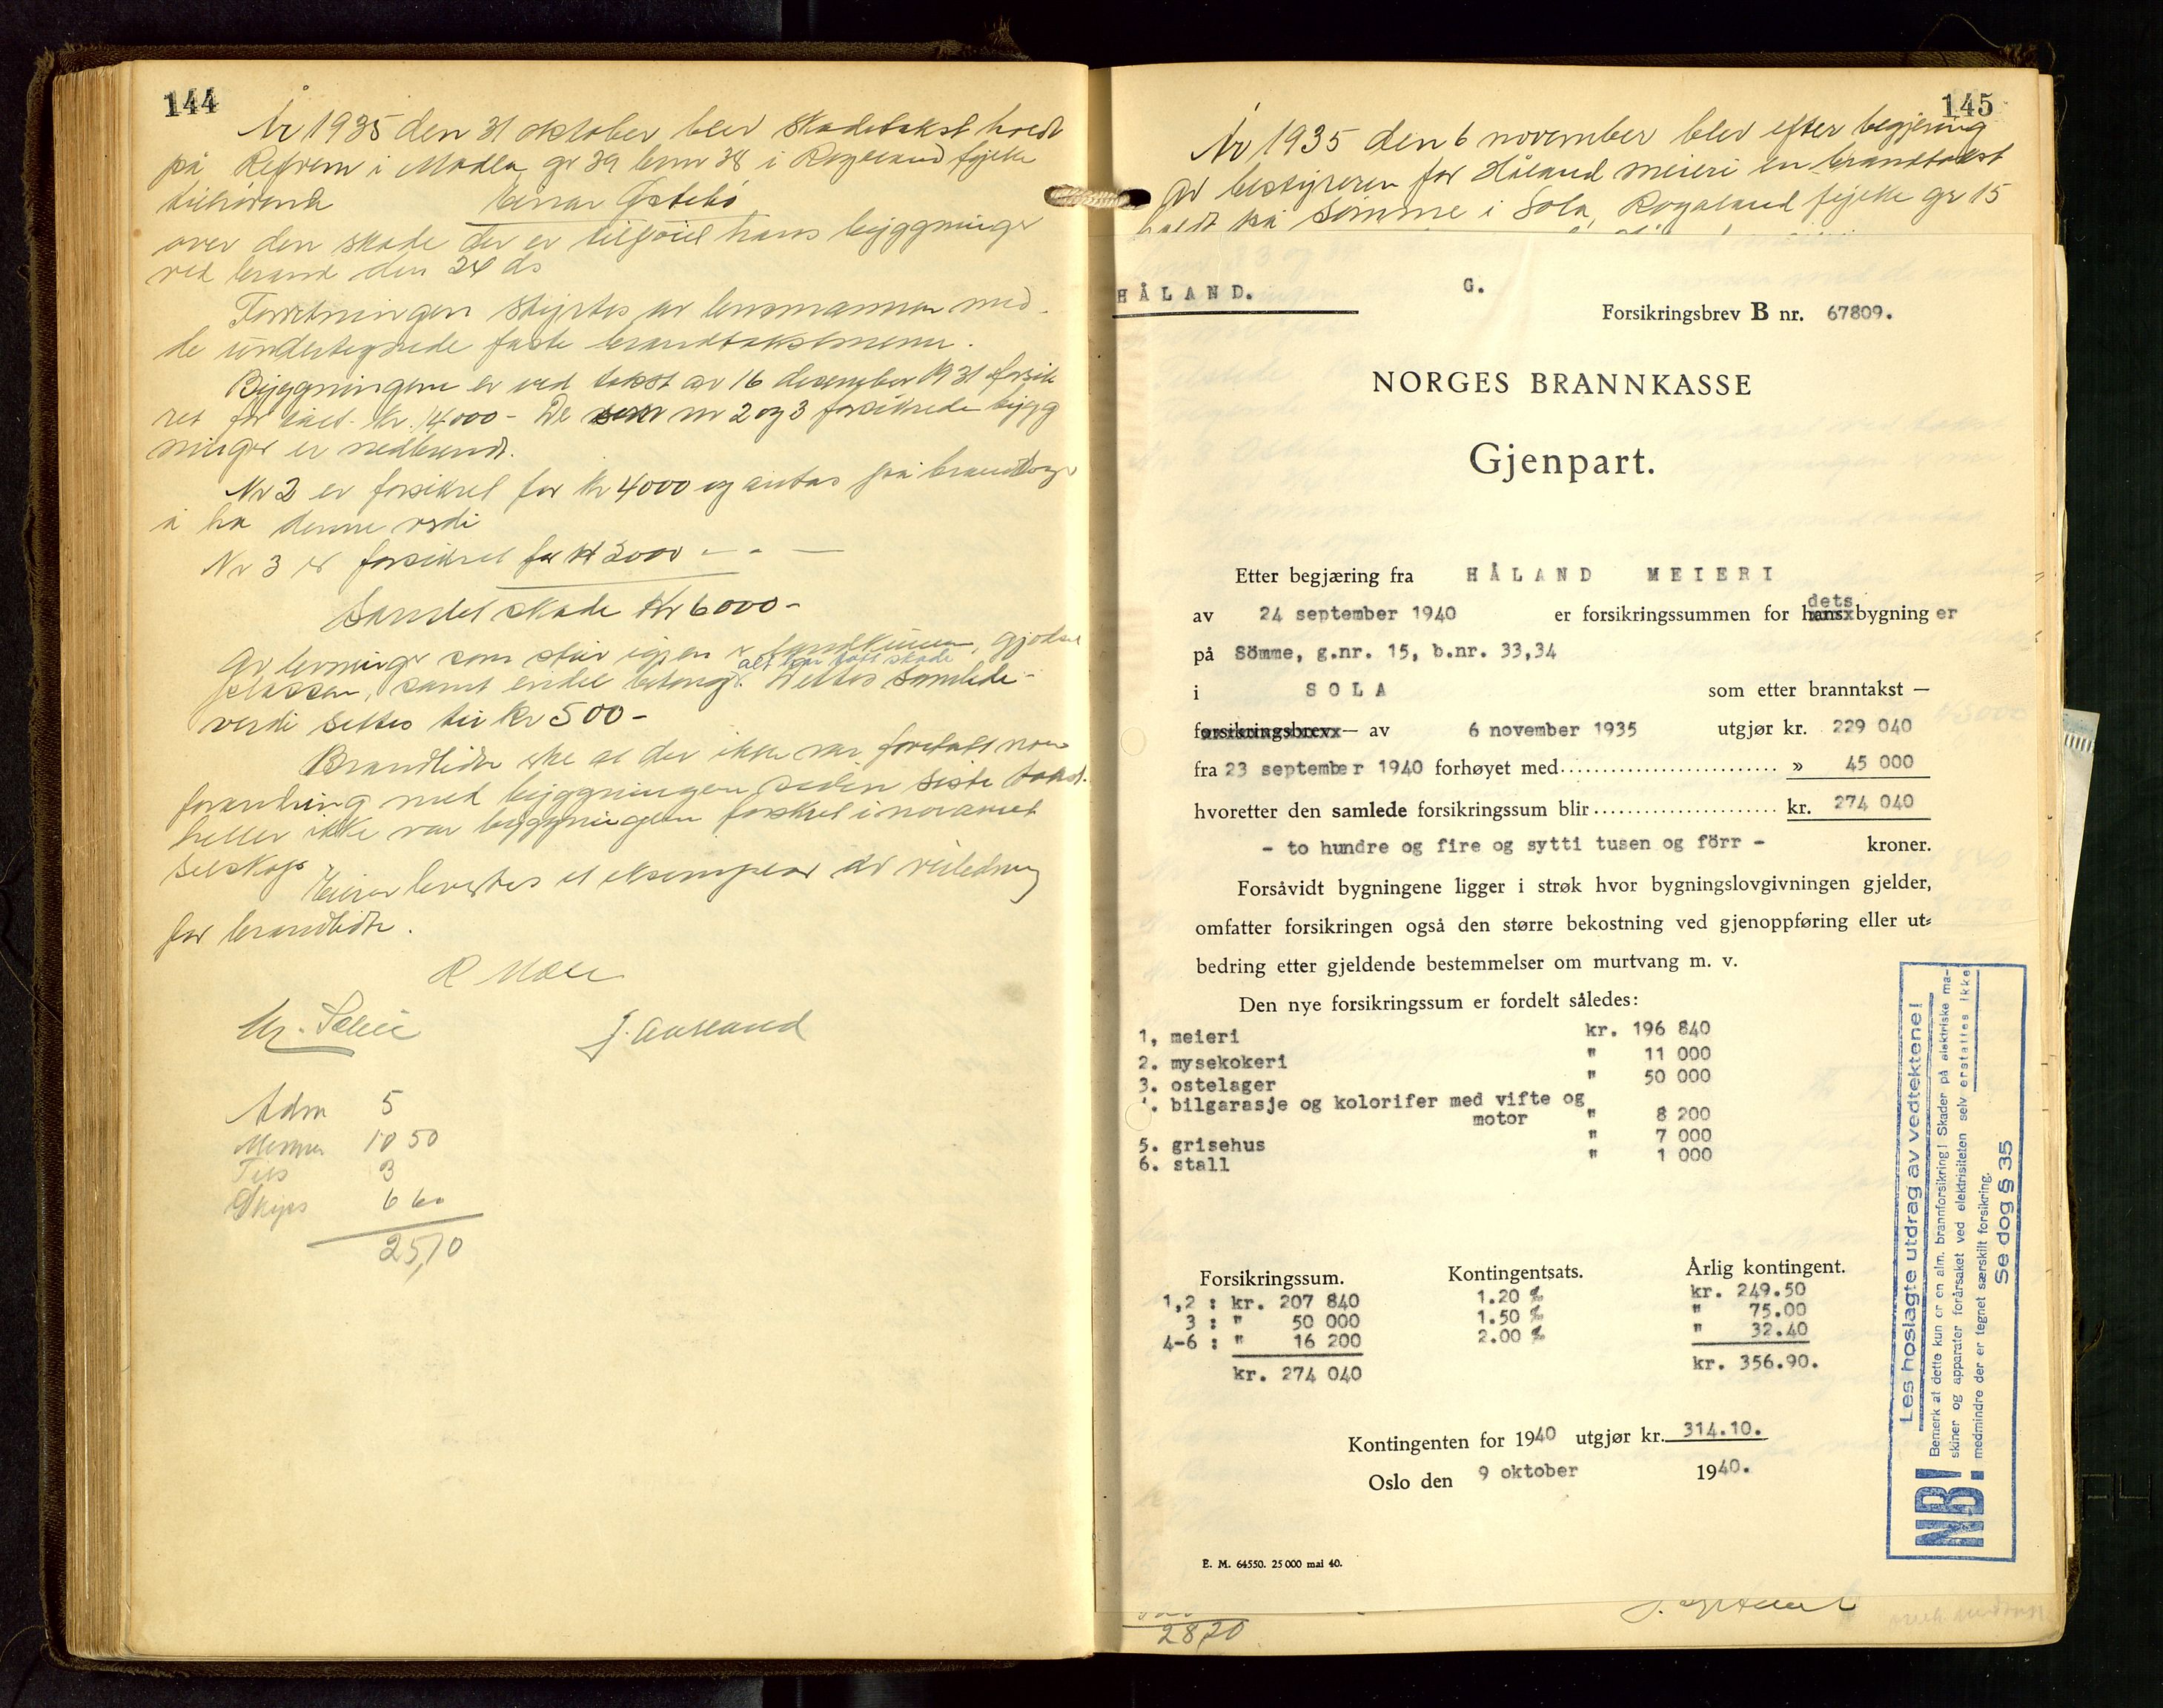 144
År 1935 den 31 oktober blev skadetakst holdt
på Revheim i Madla gr 39 brn 38 i Rogaland fylke
tilhørende Einar Østebö
over den skade der er tilføiet hans byggninger
ved brand den 24 ds
Forretningen styrtes av lensmannen med
de undertegnede faste brandtakstmenn.
Byggningene er ved takst av 16 desember 1931 forsik
ret for kr. 14000- De nr 2 og 3 forsikrede bygg
ninger er nedbrendt.
Nr 2 er forsikret for kr 4000 og antas på branddage
å ha denne verdi
Nr 3 er forsikret for kr 2000 - - -
Samlet skade kr 6000-
Av levninger som står igjen er gjødsel
alt har tatt skade
plassen, samt endel betong. Dettes samlede
verdi settes til kr 500-
Brandlidte at der ikke var foretatt noen
forandring med byggningen siden siste takst.
heller ikke var byggningen forsikret i noe annet
selskap
Eieren levertes et eksemplar av veiledning
for brandlidte.
Adm 5
Menn 10 50
3
Skyss 6 60
25,10
145
År 1935 den 6 november blev efter begjæring
av bestyreren for Håland meieri en brandtakst
holdt på Sømme i Sola, Rogaland fylke gr 15
HÅLAND. G.
Forsikringsbrev B nr. 67809.
NORGES BRANNKASSE
Gjenpart.
Etter begjæring fra HÅLAND MEIERI
dets
av 24 september 1940 er forsikringssummen for hans bygning er
på Sömme, g.nr. 15, b.nr. 33,34
i SOLA som etter branntakst —
forsikringsbrev — av 6 november 1935 utgjør kr. 229 040
fra 23 september 1940 forhøyet med » 45 000
hvoretter den samlede forsikringssum blir kr. 274 040
- to hundre og fire og sytti tusen og förr - kroner.
Forsåvidt bygningene ligger i strøk hvor bygningslovgivningen gjelder,
omfatter forsikringen også den større bekostning ved gjenoppføring eller ut=
bedring etter gjeldende bestemmelser om murtvang m. v.
Den nye forsikringssum er fordelt således:
1, meieri kr. 196 840
2. mysekokeri " 11 000
3. ostelager " 50 000
. bilgarasje og kolorifer med vifte og
motor " 8 200
5. grisehus " 7 000
6. stall " 1 000
Forsikringssum. Kontingentsats. Årlig kontingent.
1,2 : kr. 207 840 1.20 ‰ kr. 249.50
3 : " 50 000 1.50 ‰ " 75.00
4-6 : " 16 200 2.00 ‰ " 32.40
kr. 274 040 kr. 356.90.
Kontingenten for 1940 utgjør kr. 314.10.
Oslo den 9 oktober 1940.
E. M. 64550. 25 000 mai 40.
NB! Les hoslagte utdrag av vedtektene!
Bemerk at dette kun er en alm. brannforsikring! Skader på elektriske ma-
skiner og apparater forårsaket ved elektrisiteten selv erstattes ikke
medmindre der er tegnet særskilt forsikring.
Se dog § 35
28,20